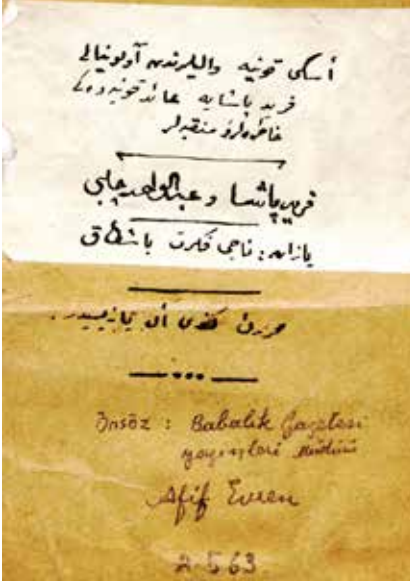 أسكى قونيه واليلرندن آولونيالى
فريد پاشايه عائد قونيه ده كى
خاطره لرو منقبه لر
فريد پاشا و عبدالواحد چلبى
يازان : ناجى فكرت باشطاق
محررك كندى أل يازيسيدر .
Önsöz : Babalık Gazetesi
yayışları Müdürü
Afif Evren
2-5-63